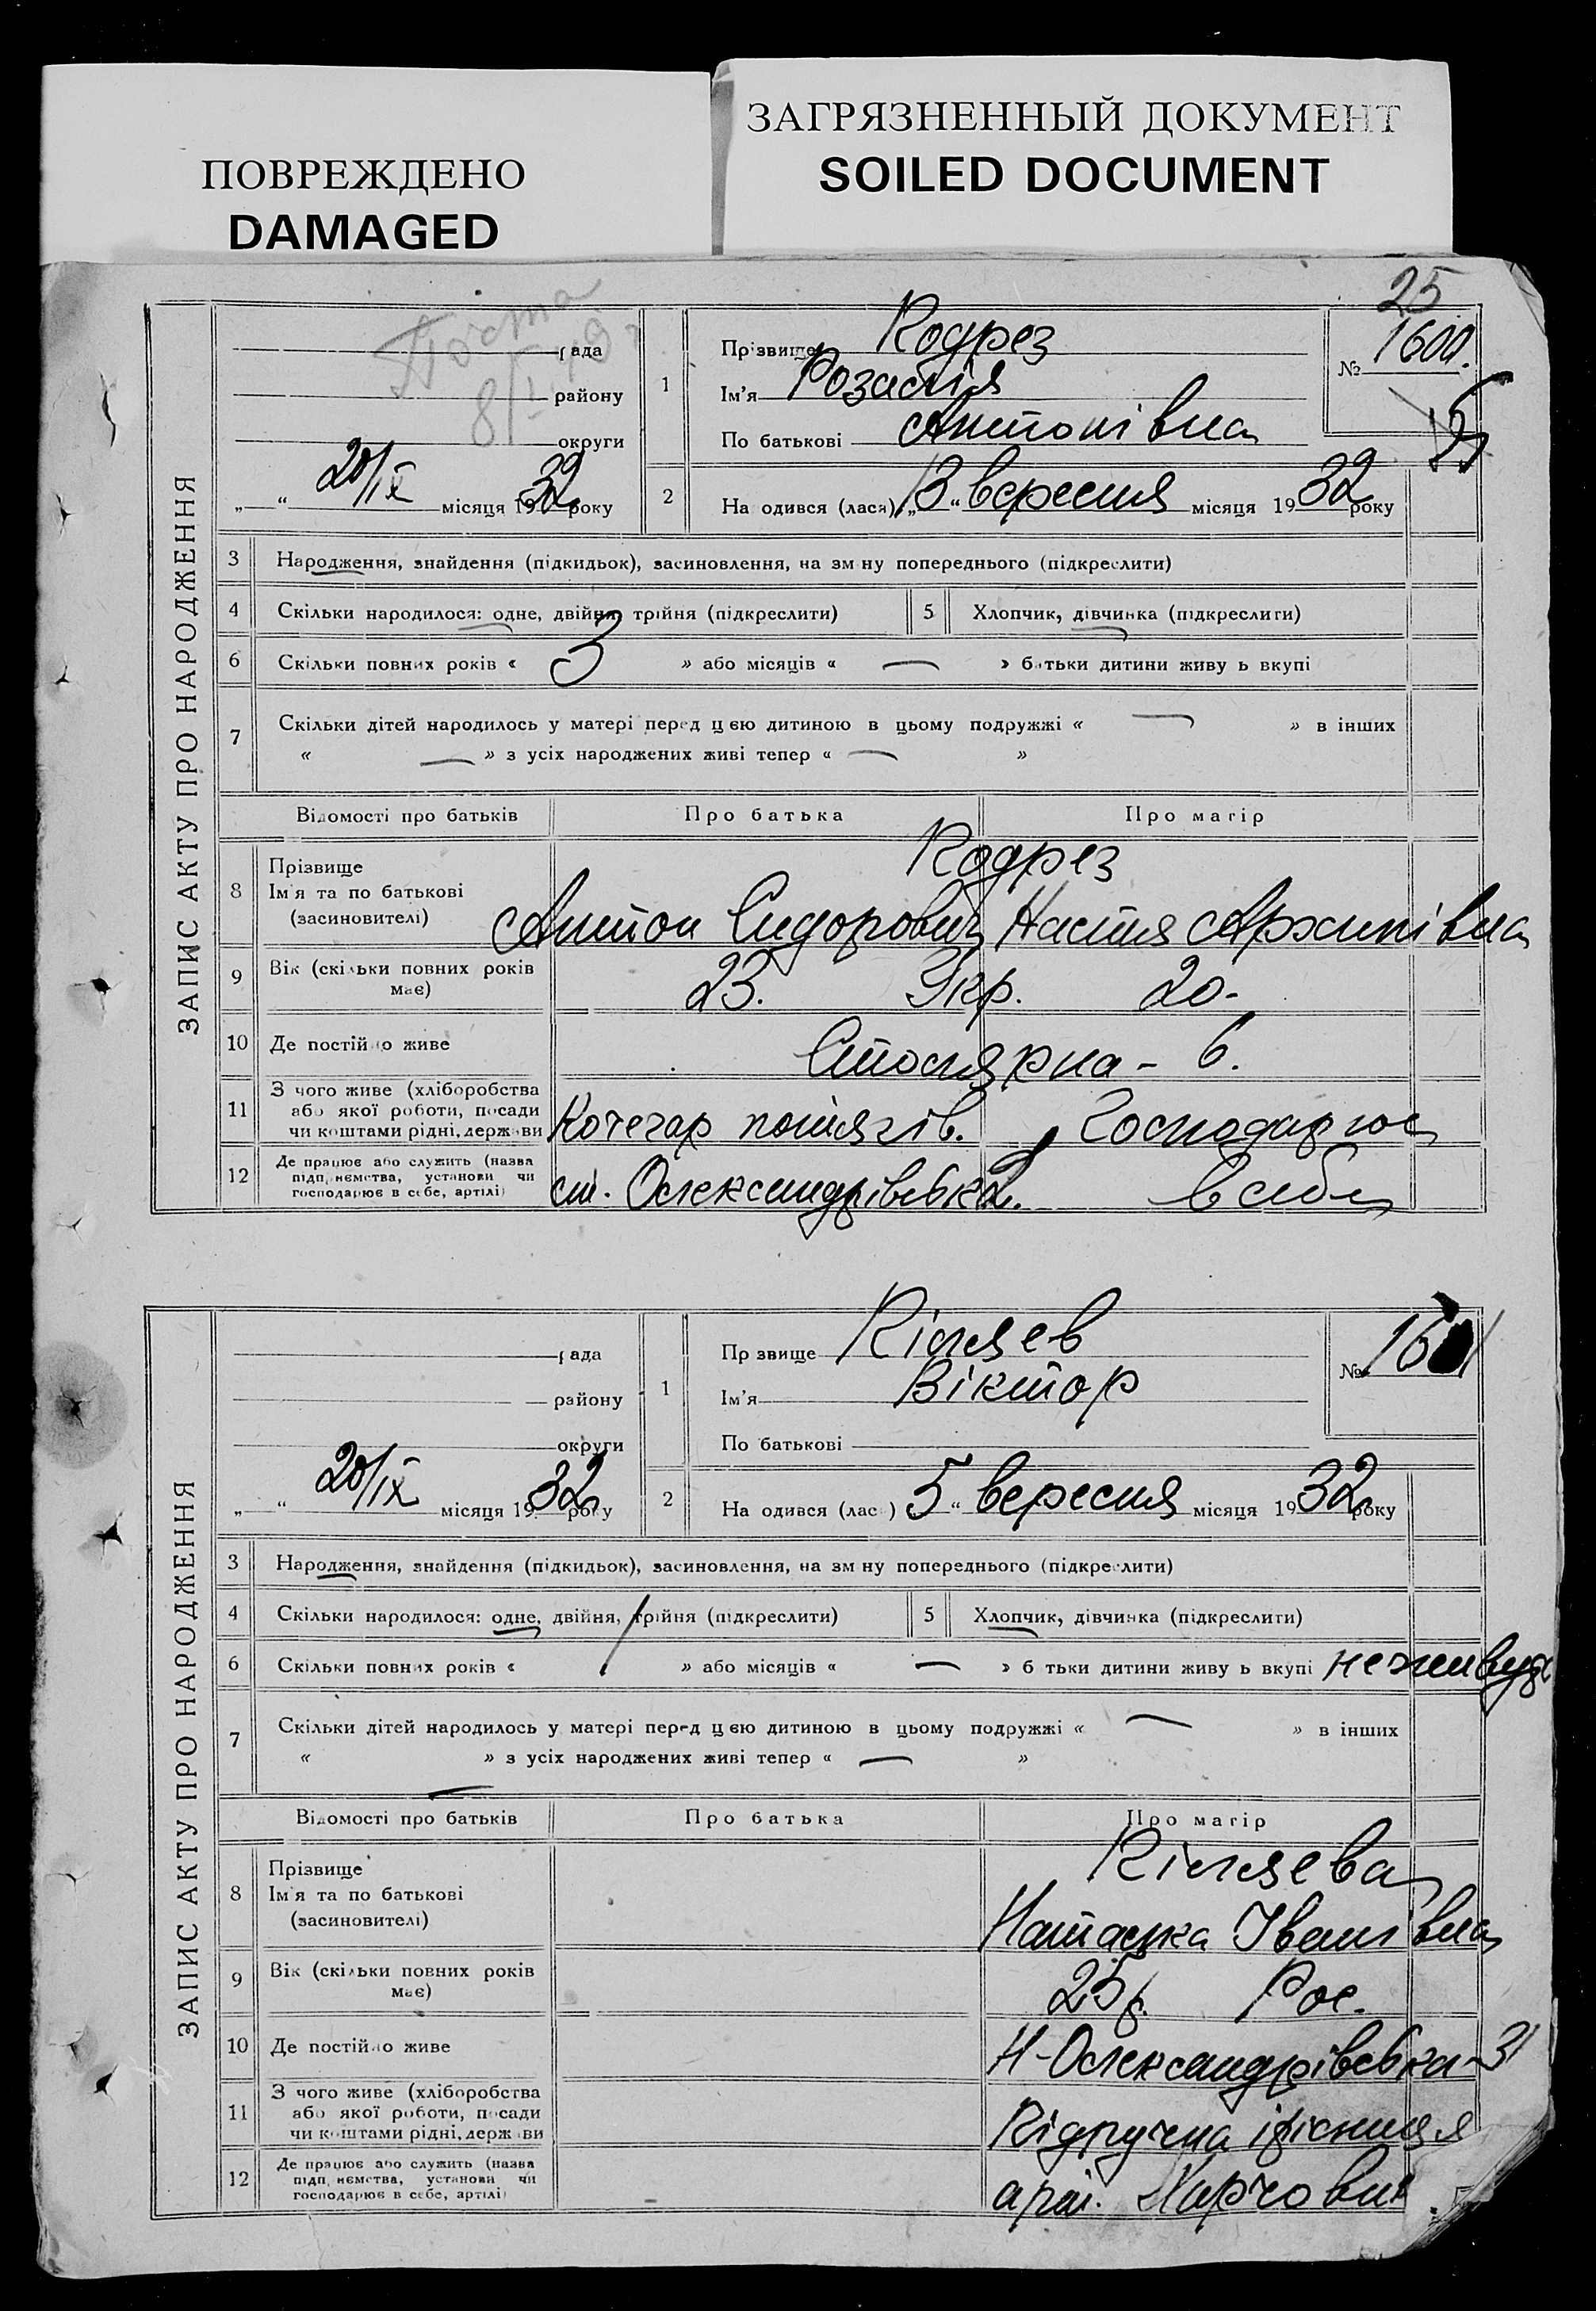 ПОВРЕЖДЕНО
DAMAGED
ЗАГРЯЗНЕННЫЙ ДОКУМЕНТ
SOILED DOCUMENT
25
ЗАПИС АКТУ ПРО НАРОДЖЕННЯ
рада
району
округи
„ “ 20/IX місяця 1932 року
1
Прізвище Кодрез
Ім'я Розалія
По батькові Антонівна
№ 1600.
2
На одився (лася) „13“ вересня місяця 1932 року
3 Народження, знайдення (підкидьок), засиновлення, на зм ну попереднього (підкреслити)
4 Скільки народилося: одне, двійня, трійня (підкреслити) 5 Хлопчик, дівчинка (підкреслити)
6 Скільки повних років « 3 » або місяців « — » батьки дитини живу ь вкупі
7 Скільки дітей народилось у матері перед цею дитиною в цьому подружжі « — » в інших
« — » з усіх народжених живі тепер « — »
Відомості про батьків Про батька Про матір
8 Прізвище
Ім'я та по батькові
(засиновителі)
Кодрез
Антон Сидорович Настя Архипівна
9 Вік (скільки повних років має) 23. Укр. 20.
10 Де постійно живе Столярна - 6.
11 З чого живе (хліборобства
або якої роботи, посади
чи коштами рідні, держави
Кочегар потягів. Господарює
12 Де працює або служить (назва
підприємства, установи чи
господарює в себе, артілі)
ст. Олександрівська. в себе
ЗАПИС АКТУ ПРО НАРОДЖЕННЯ
рада
району
округи
„ “ 20/IX місяця 1932 року
1
Пр звище Кіляев
Ім'я Віктор
По батькові
№ 1601
2
На одився (лас ) 5 “ вересня місяця 1932 року
3 Народження, знайдення (підкидьок), засиновлення, на зм ну попереднього (підкреслити)
4 Скільки народилося: одне, двійня, трійня (підкреслити) 5 Хлопчик, дівчинка (підкреслити)
6 Скільки повних років « / » або місяців « — » б тьки дитини живу ь вкупі не живуть
7 Скільки дітей народилось у матері перед цею дитиною в цьому подружжі « — » в інших
« — » з усіх народжених живі тепер « — »
Відомості про батьків Про батька Про матір
8 Прізвище
Ім'я та по батькові
(засиновителі)
Кіляева
Наталка Іванівна
9 Вік (скільки повних років має) 25р. Рос.
10 Де постійно живе Н-Олександрівська-31
11 З чого живе (хліборобства
або якої роботи, посади
чи коштами рідні, держави
12 Де працює або служить (назва
підприємства, установи чи
господарює в себе, артілі)
арт. Харчовик